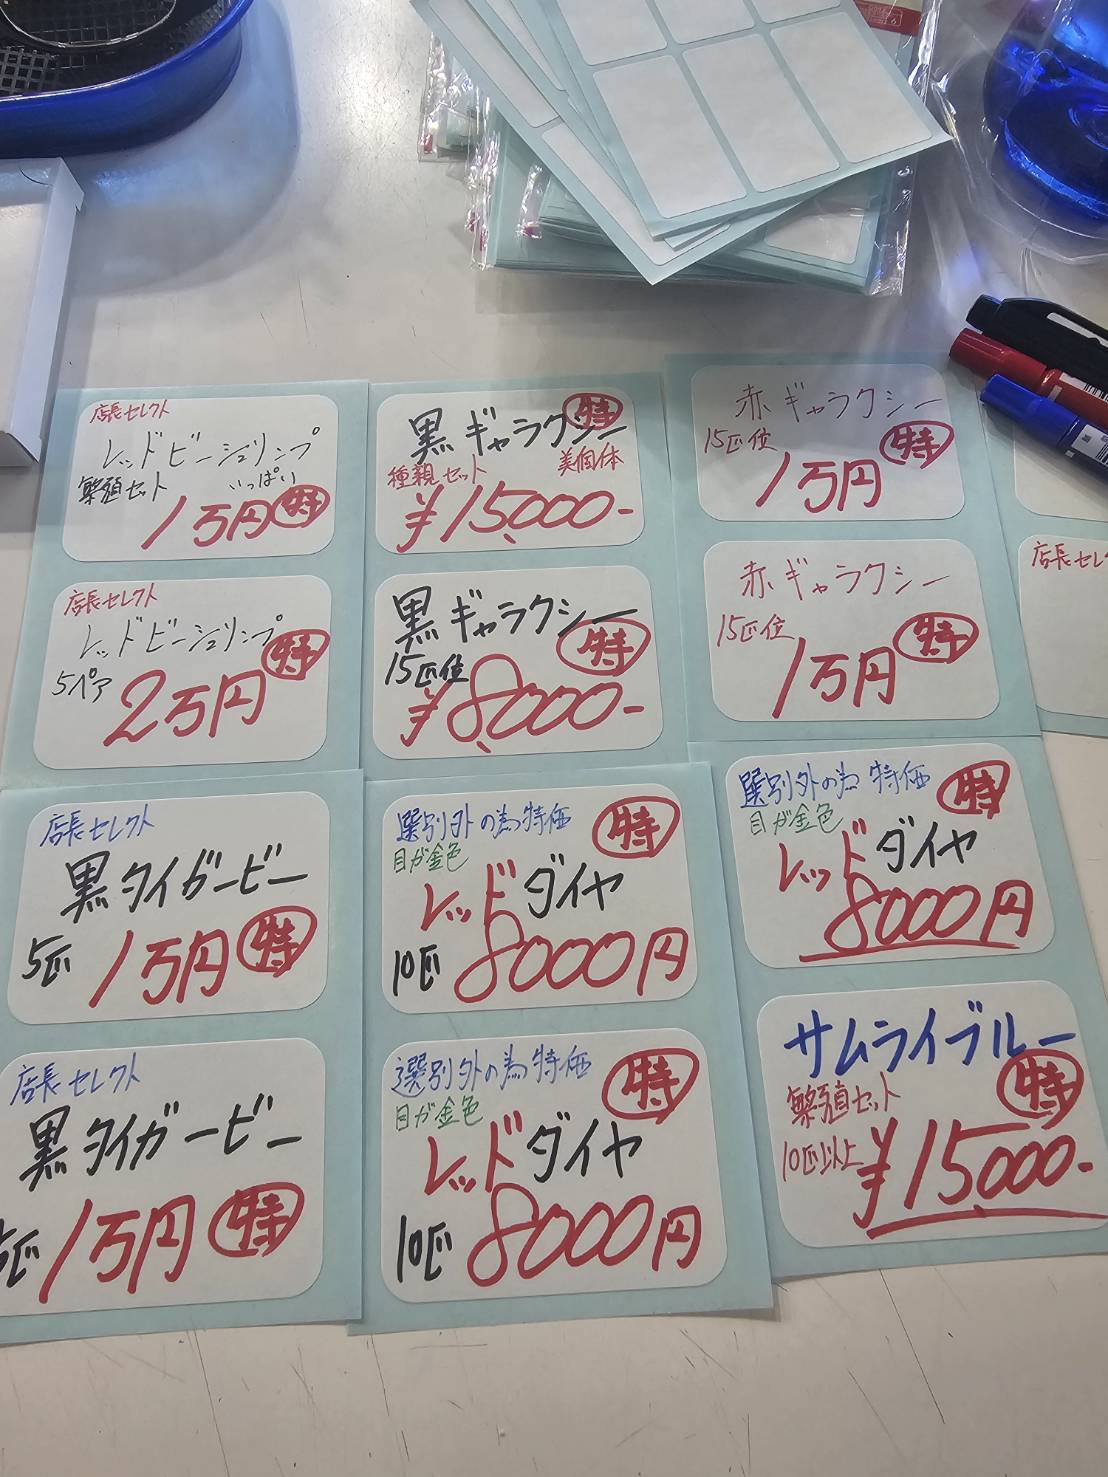 店長セレクト
レッドビーシュリンプ
繁殖セット いっぱい
1万円 特
店長セレクト
レッドビーシュリンプ
5ペア 2万円 特
黒ギャラクシー 特
種親セット 美個体
¥15,000-
黒ギャラクシー
15匹位 特
¥8,000-
赤ギャラクシー
15匹位 特
1万円
赤ギャラクシー
15匹位 特
1万円
店長セレ
店長セレクト
黒タイガービー
5匹 1万円 特
店長セレクト
黒タイガービー
5匹 1万円 特
選別外の為特価 特
目が金色
レッドダイヤ
10匹 8000円
選別外の為特価 特
目が金色
レッドダイヤ
10匹 8000円
選別外の為 特価 特
目が金色
レッドダイヤ
8000円
サムライブルー
繁殖セット 特
10匹以上 ¥15,000-